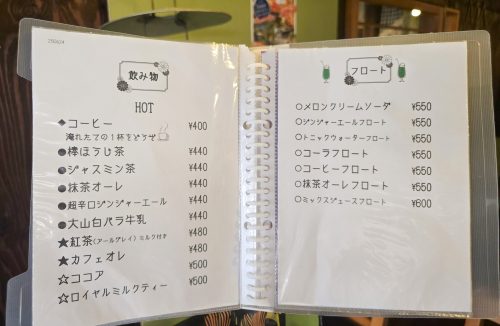 250624
飲み物
HOT
◆コーヒー ¥400
淹れたての1杯をどうぞ
●棒ほうじ茶 ¥440
●ジャスミン茶 ¥440
●抹茶オーレ ¥440
●超辛口ジンジャーエール ¥440
●大山白バラ牛乳 ¥440
★紅茶(アールグレイ)ミルク付き ¥480
★カフェオレ ¥480
☆ココア ¥500
☆ロイヤルミルクティー ¥500
フロート
○メロンクリームソーダ ¥550
○ジンジャーエールフロート ¥550
○トニックウォーターフロート ¥550
○コーラフロート ¥550
○コーヒーフロート ¥550
○抹茶オーレフロート ¥550
○ミックスジュースフロート ¥600